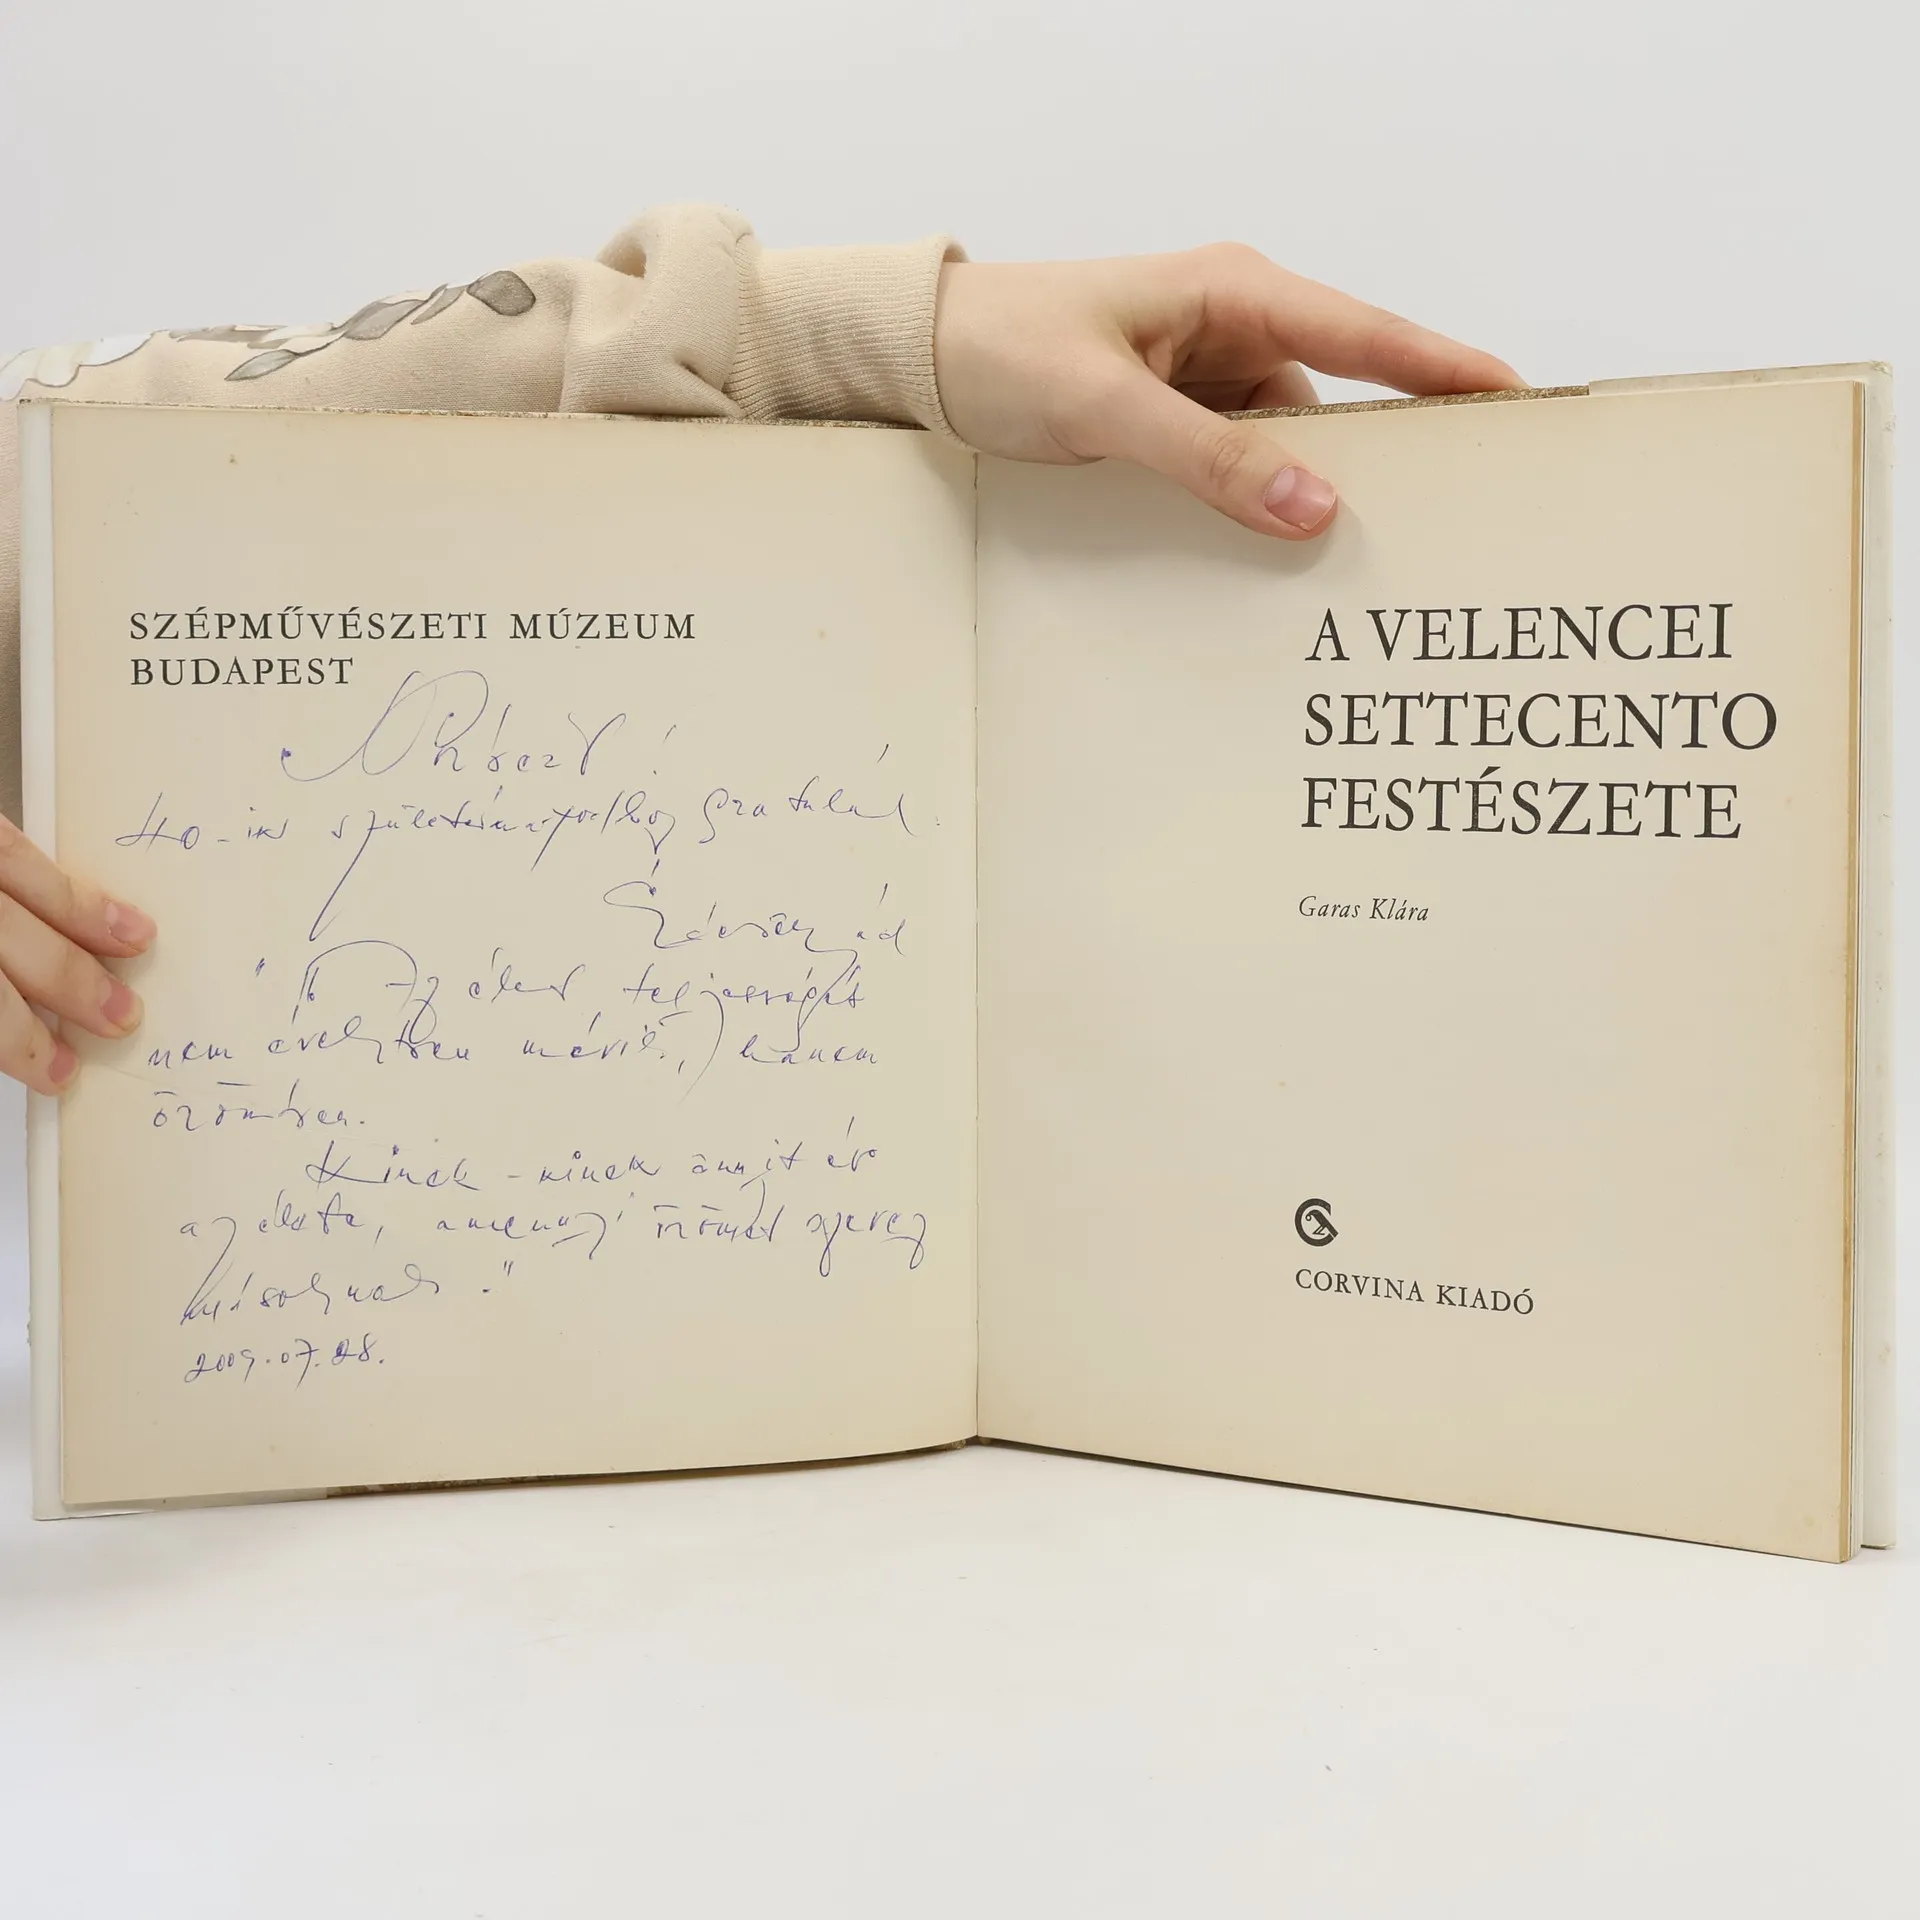 SZÉPMŰVÉSZETI MÚZEUM
BUDAPEST
40-ik születésnapodhoz gratulál
Édesapád
" Az élet teljességét
nem években mérik, hanem
örömben.
Kinek-kinek annyit ér
az élete, amennyi örömet szerez
másoknak."
2009.07.28.
A VELENCEI
SETTECENTO
FESTÉSZETE
Garas Klára
CORVINA KIADÓ